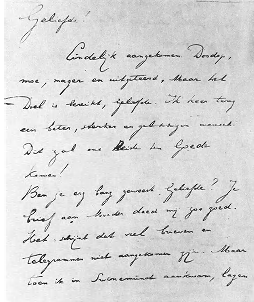 Geliefde!
Eindelijk aangekomen Dorstig,
moe, mager en uitgeteerd, Maar het
Doel is bereikt, Geliefde. Ik keer terug
een beter, sterker en gelukkiger mensch.
Dit zal ons Beide ten Goede
komen!
Ben je erg bang geweest Geliefde? Je
brief aan Moeder deed mij zoo goed.
Het schijnt dat veel brieven en
Telegrammen niet aangekomen zijn. Maar
toen ik in Swinemünde aankwam, lagen